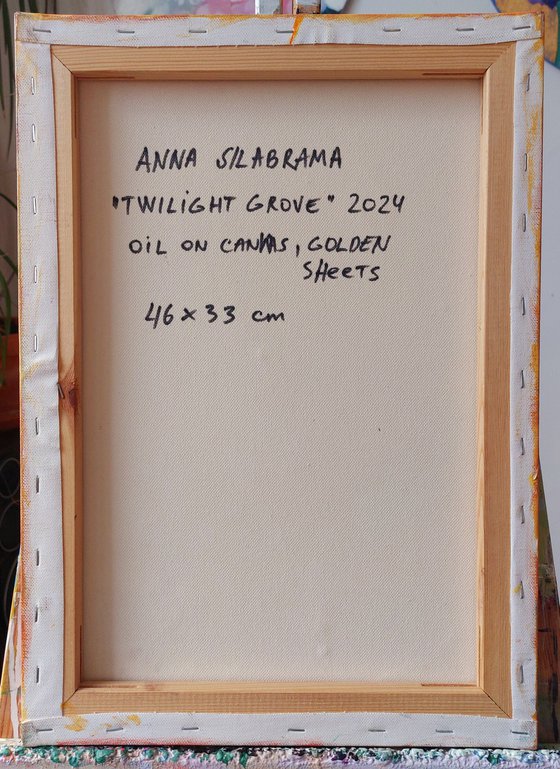 ANNA SILABRAMA
"TWILIGHT GROVE" 2024
OIL ON CANVAS, GOLDEN
SHEETS
46 x 33 cm